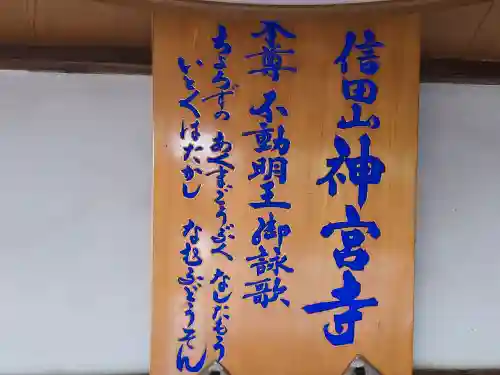 信田山神宮寺
本尊 不動明王御詠歌
ちよろずの あくまごうぶく なしたもう
いとくはたかし なむふどうそん